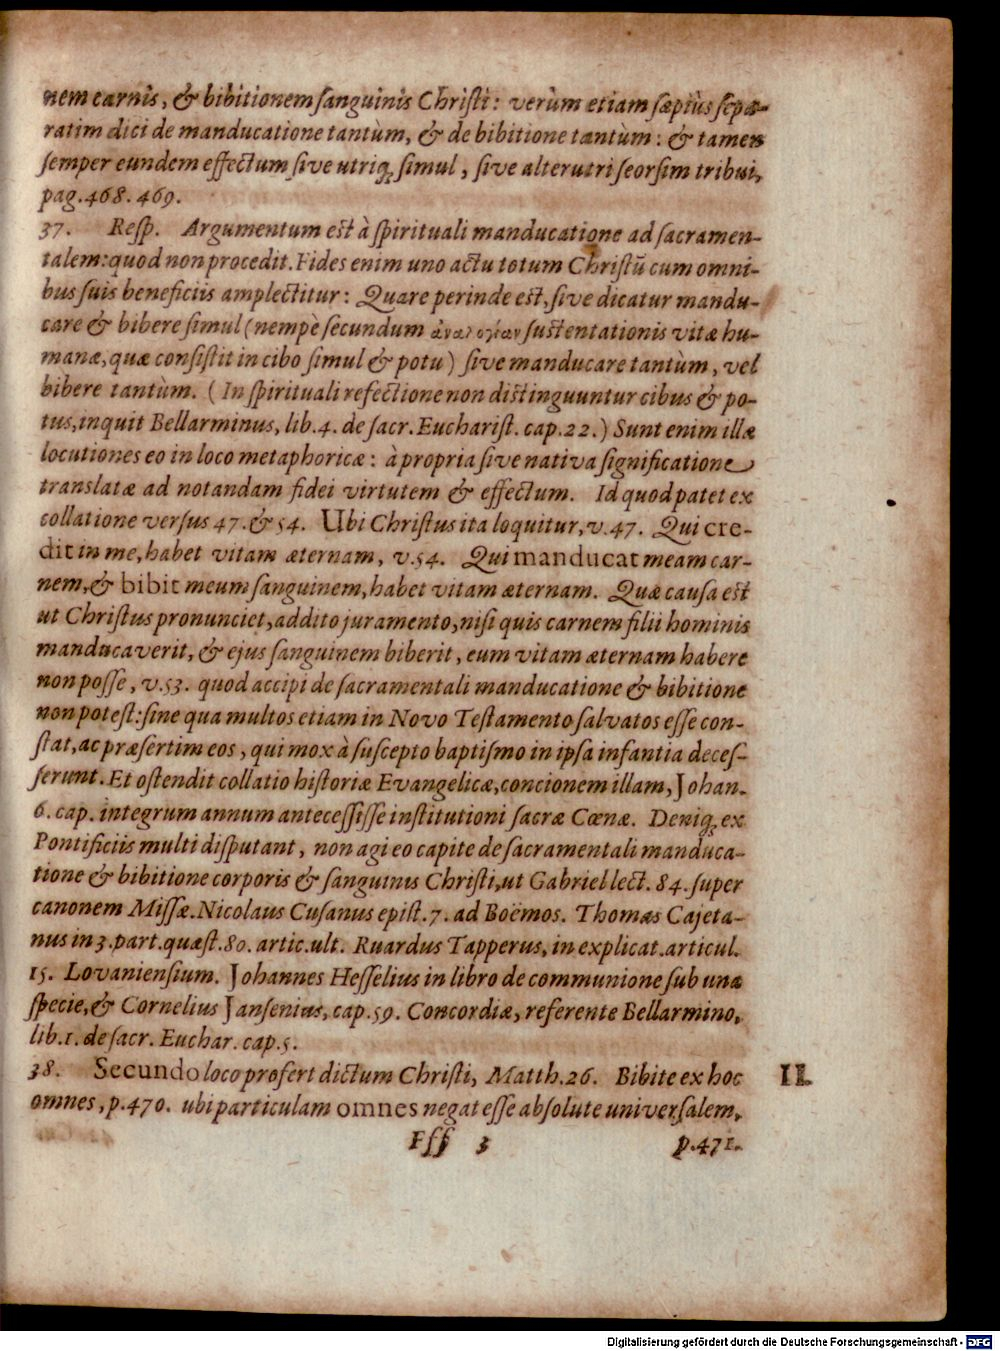 nem carnis, & bibitionem sanguinis Christi: verùm etiam sæpiùs sepa-
ratim dici de manducatione tantùm, & de bibitione tantùm: & tamen
semper eundem effectum sive utriq; simul, sive alterutri seorsim tribui,
pag. 468. 469.
37. Resp. Argumentum est à spirituali manducatione ad sacramen-
talem: quod non procedit. Fides enim uno actu totum Christū cum omni-
bus suis beneficiis amplectitur: Quare perinde est, sive dicatur mandu-
care & bibere simul (nempè secundum ἀναλογίαν sustentationis vitæ hu-
manæ, quæ consistit in cibo simul & potu) sive manducare tantùm, vel
bibere tantùm. (In spirituali refectione non distinguuntur cibus & po-
tus, inquit Bellarminus, lib. 4. de sacr. Eucharist. cap. 22.) Sunt enim illæ
locutiones eo in loco metaphoricæ: à propria sive nativa significatione
translatæ ad notandam fidei virtutem & effectum. Id quod patet ex
collatione versus 47. & 54. Ubi Christus ita loquitur, v. 47. Qui cre-
dit in me, habet vitam æternam, v. 54. Qui manducat meam car-
nem, & bibit meum sanguinem, habet vitam æternam. Quæ causa est
ut Christus pronunciet, addito juramento, nisi quis carnem filii hominis
manducaverit, & ejus sanguinem biberit, eum vitam æternam habere
non posse, v. 53. quod accipi de sacramentali manducatione & bibitione
non potest: sine qua multos etiam in Novo Testamento salvatos esse con-
stat, ac præsertim eos, qui mox à suscepto baptismo in ipsa infantia deces-
serunt. Et ostendit collatio historiæ Evangelicæ, concionem illam, Johan.
6. cap. integrum annum antecessisse institutioni sacræ Cœnæ. Deniq; ex
Pontificiis multi disputant, non agi eo capite de sacramentali manduca-
tione & bibitione corporis & sanguinis Christi, ut Gabriel lect. 84. super
canonem Missæ. Nicolaus Cusanus epist. 7. ad Boëmos. Thomas Cajeta-
nus in 3. part. quæst. 80. artic. ult. Ruardus Tapperus, in explicat. articul.
15. Lovaniensium. Johannes Hesselius in libro de communione sub una
specie, & Cornelius Jansenius, cap. 59. Concordiæ, referente Bellarmino,
lib. 1. de sacr. Euchar. cap. 5.
38. Secundo loco profert dictum Christi, Matth. 26. Bibite ex hoc II.
omnes, p. 470. ubi particulam omnes negat esse absolute universalem,
Fff 3 p. 471.
Digitalisierung gefördert durch die Deutsche Forschungsgemeinschaft - DFG